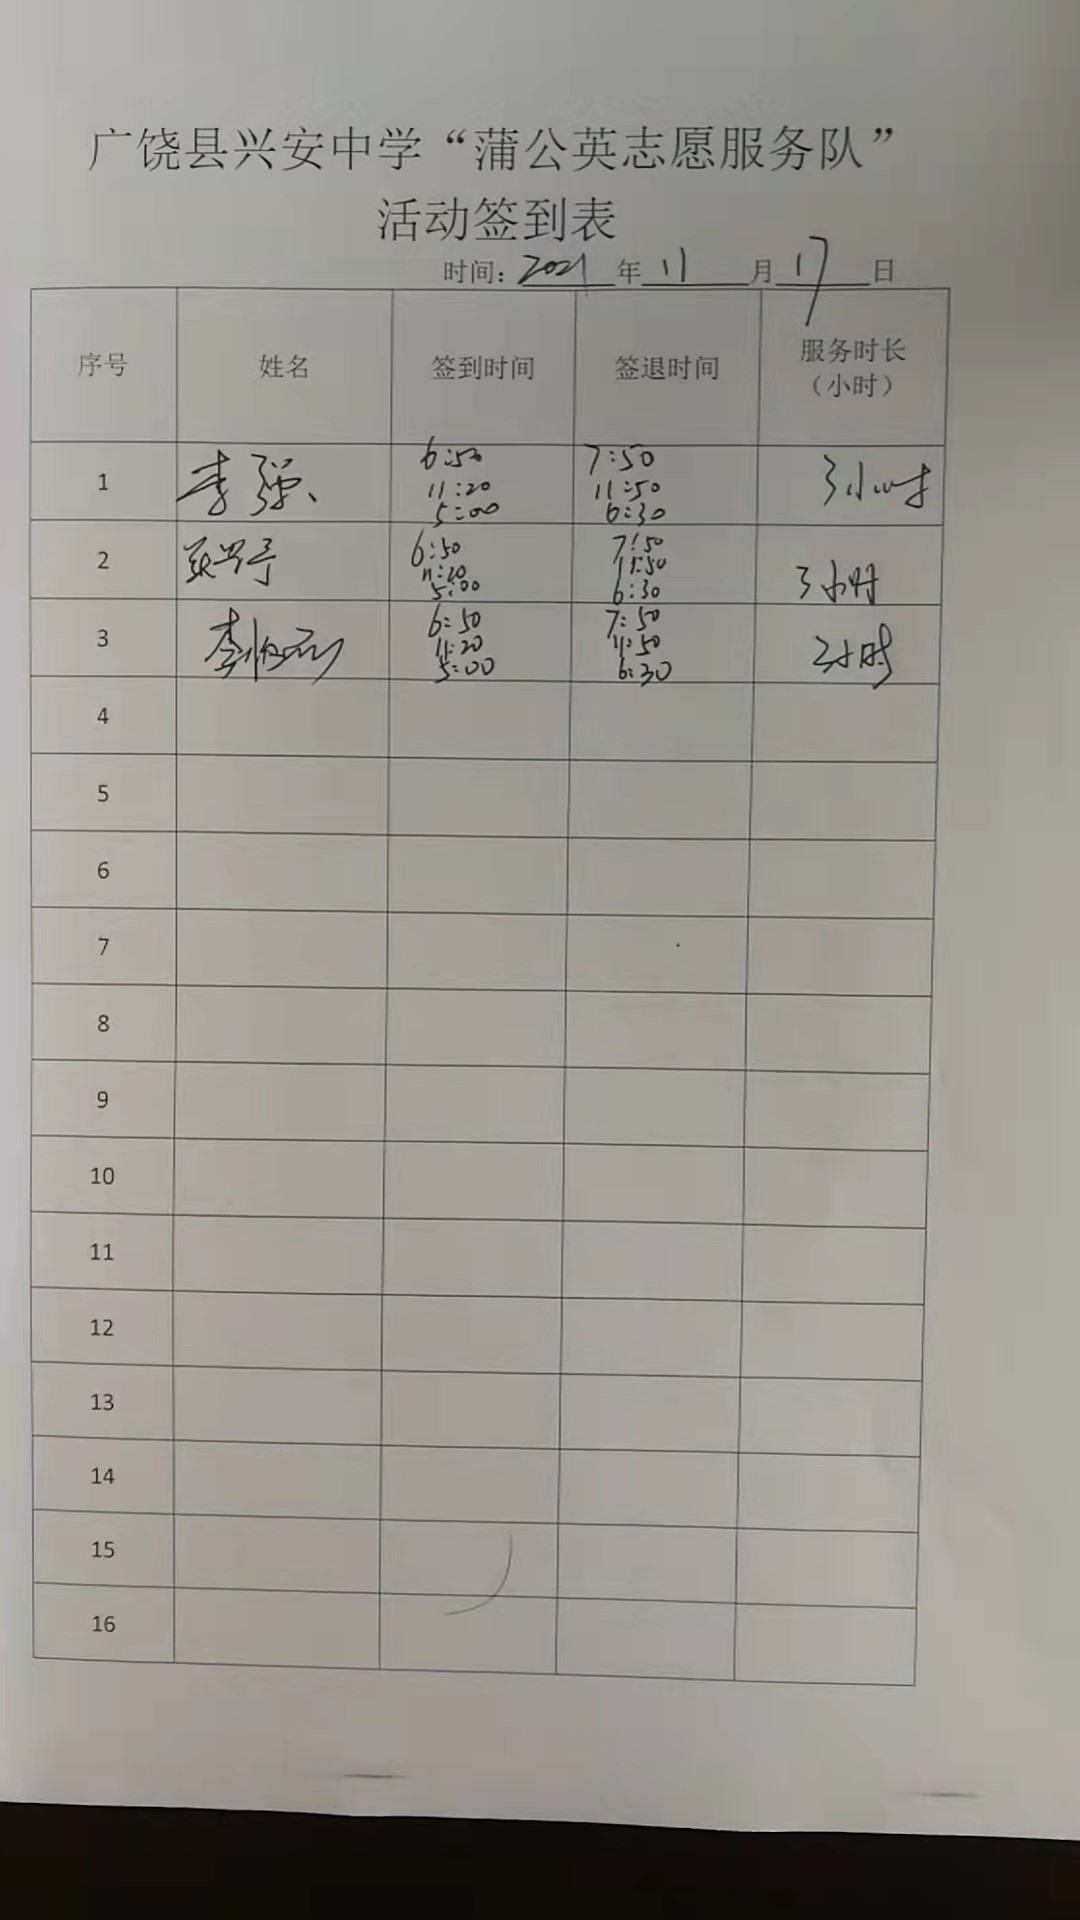 广饶县兴安中学“蒲公英志愿服务队”
活动签到表
时间：2021年11月17日
序号 姓名 签到时间 签退时间 服务时长（小时）
1 李强 6:50 7:50 3小时
11:20 11:50
5:00 6:30
2 6:50 7:50 3小时
11:20 11:50
5:00 6:30
3 李 6:50 7:50 3小时
11:20 11:50
5:00 6:30
4
5
6
7
8
9
10
11
12
13
14
15
16